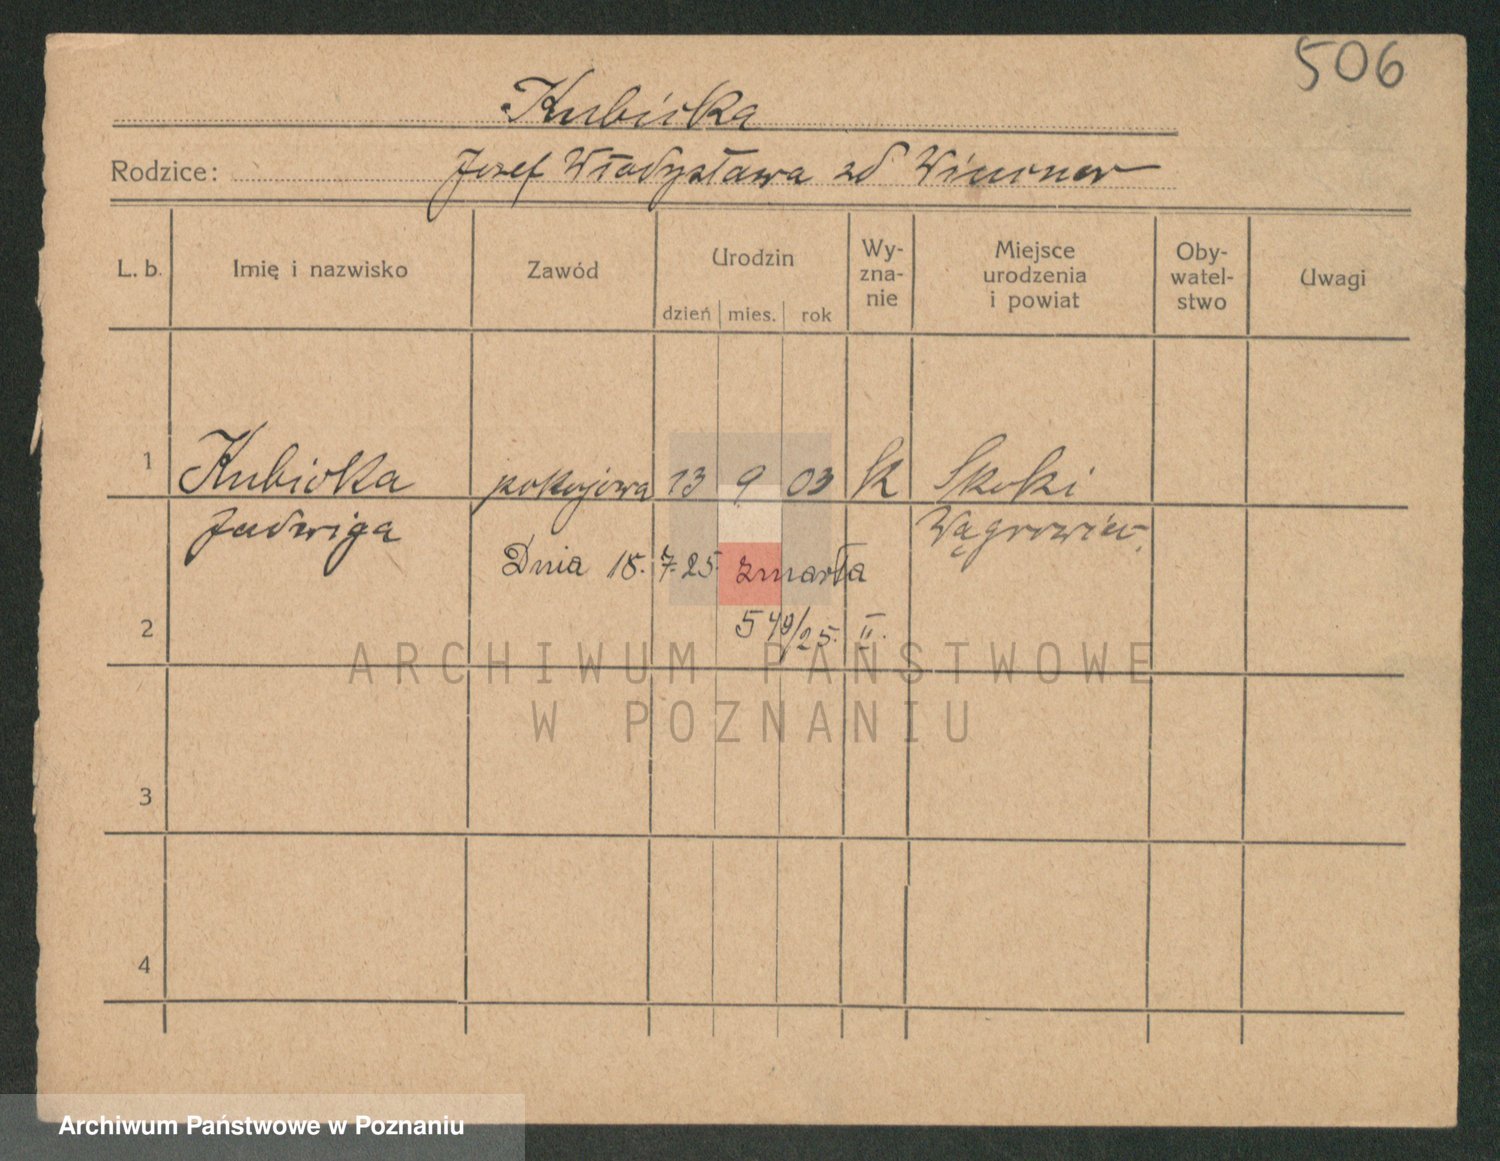 506
Kubicka
Rodzice: Józef Władysława zd
L. b. Imię i nazwisko Zawód Urodzin Wy-zna-nie Miejsce urodzenia i powiat Oby-watel-stwo Uwagi
dzień mies. rok
1 Kubicka pokojowa 13 9 03 k Skoki
Jadwiga Wągrowiec
Dnia 18. 7. 25. zmarła
2 549/25. II.
ARCHIWUM PAŃSTWOWE
W POZNANIU
3
4
Archiwum Państwowe w Poznaniu